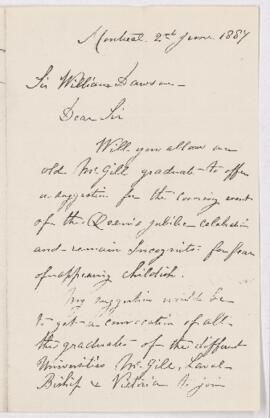 Montreal. 2nd June. 1887
Sir William Dawson—
Dear Sir
Will you allow an
old McGill graduate to offer
a suggestion for the coming event
of the Queen's jubilee celebration
and remain Incognito for fear
of appearing childish.
My suggestion would be
to get a convocation of all
the graduates of the different
Universities McGill, Laval
Bishop & Victoria to join